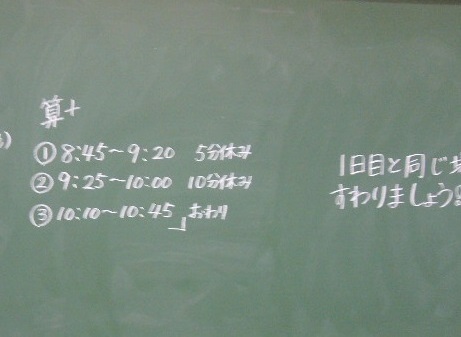 算+
① 8:45～9:20 5分休み
② 9:25～10:00 10分休み
③ 10:10～10:45」おわり
1日目と同じ
すわりましょう